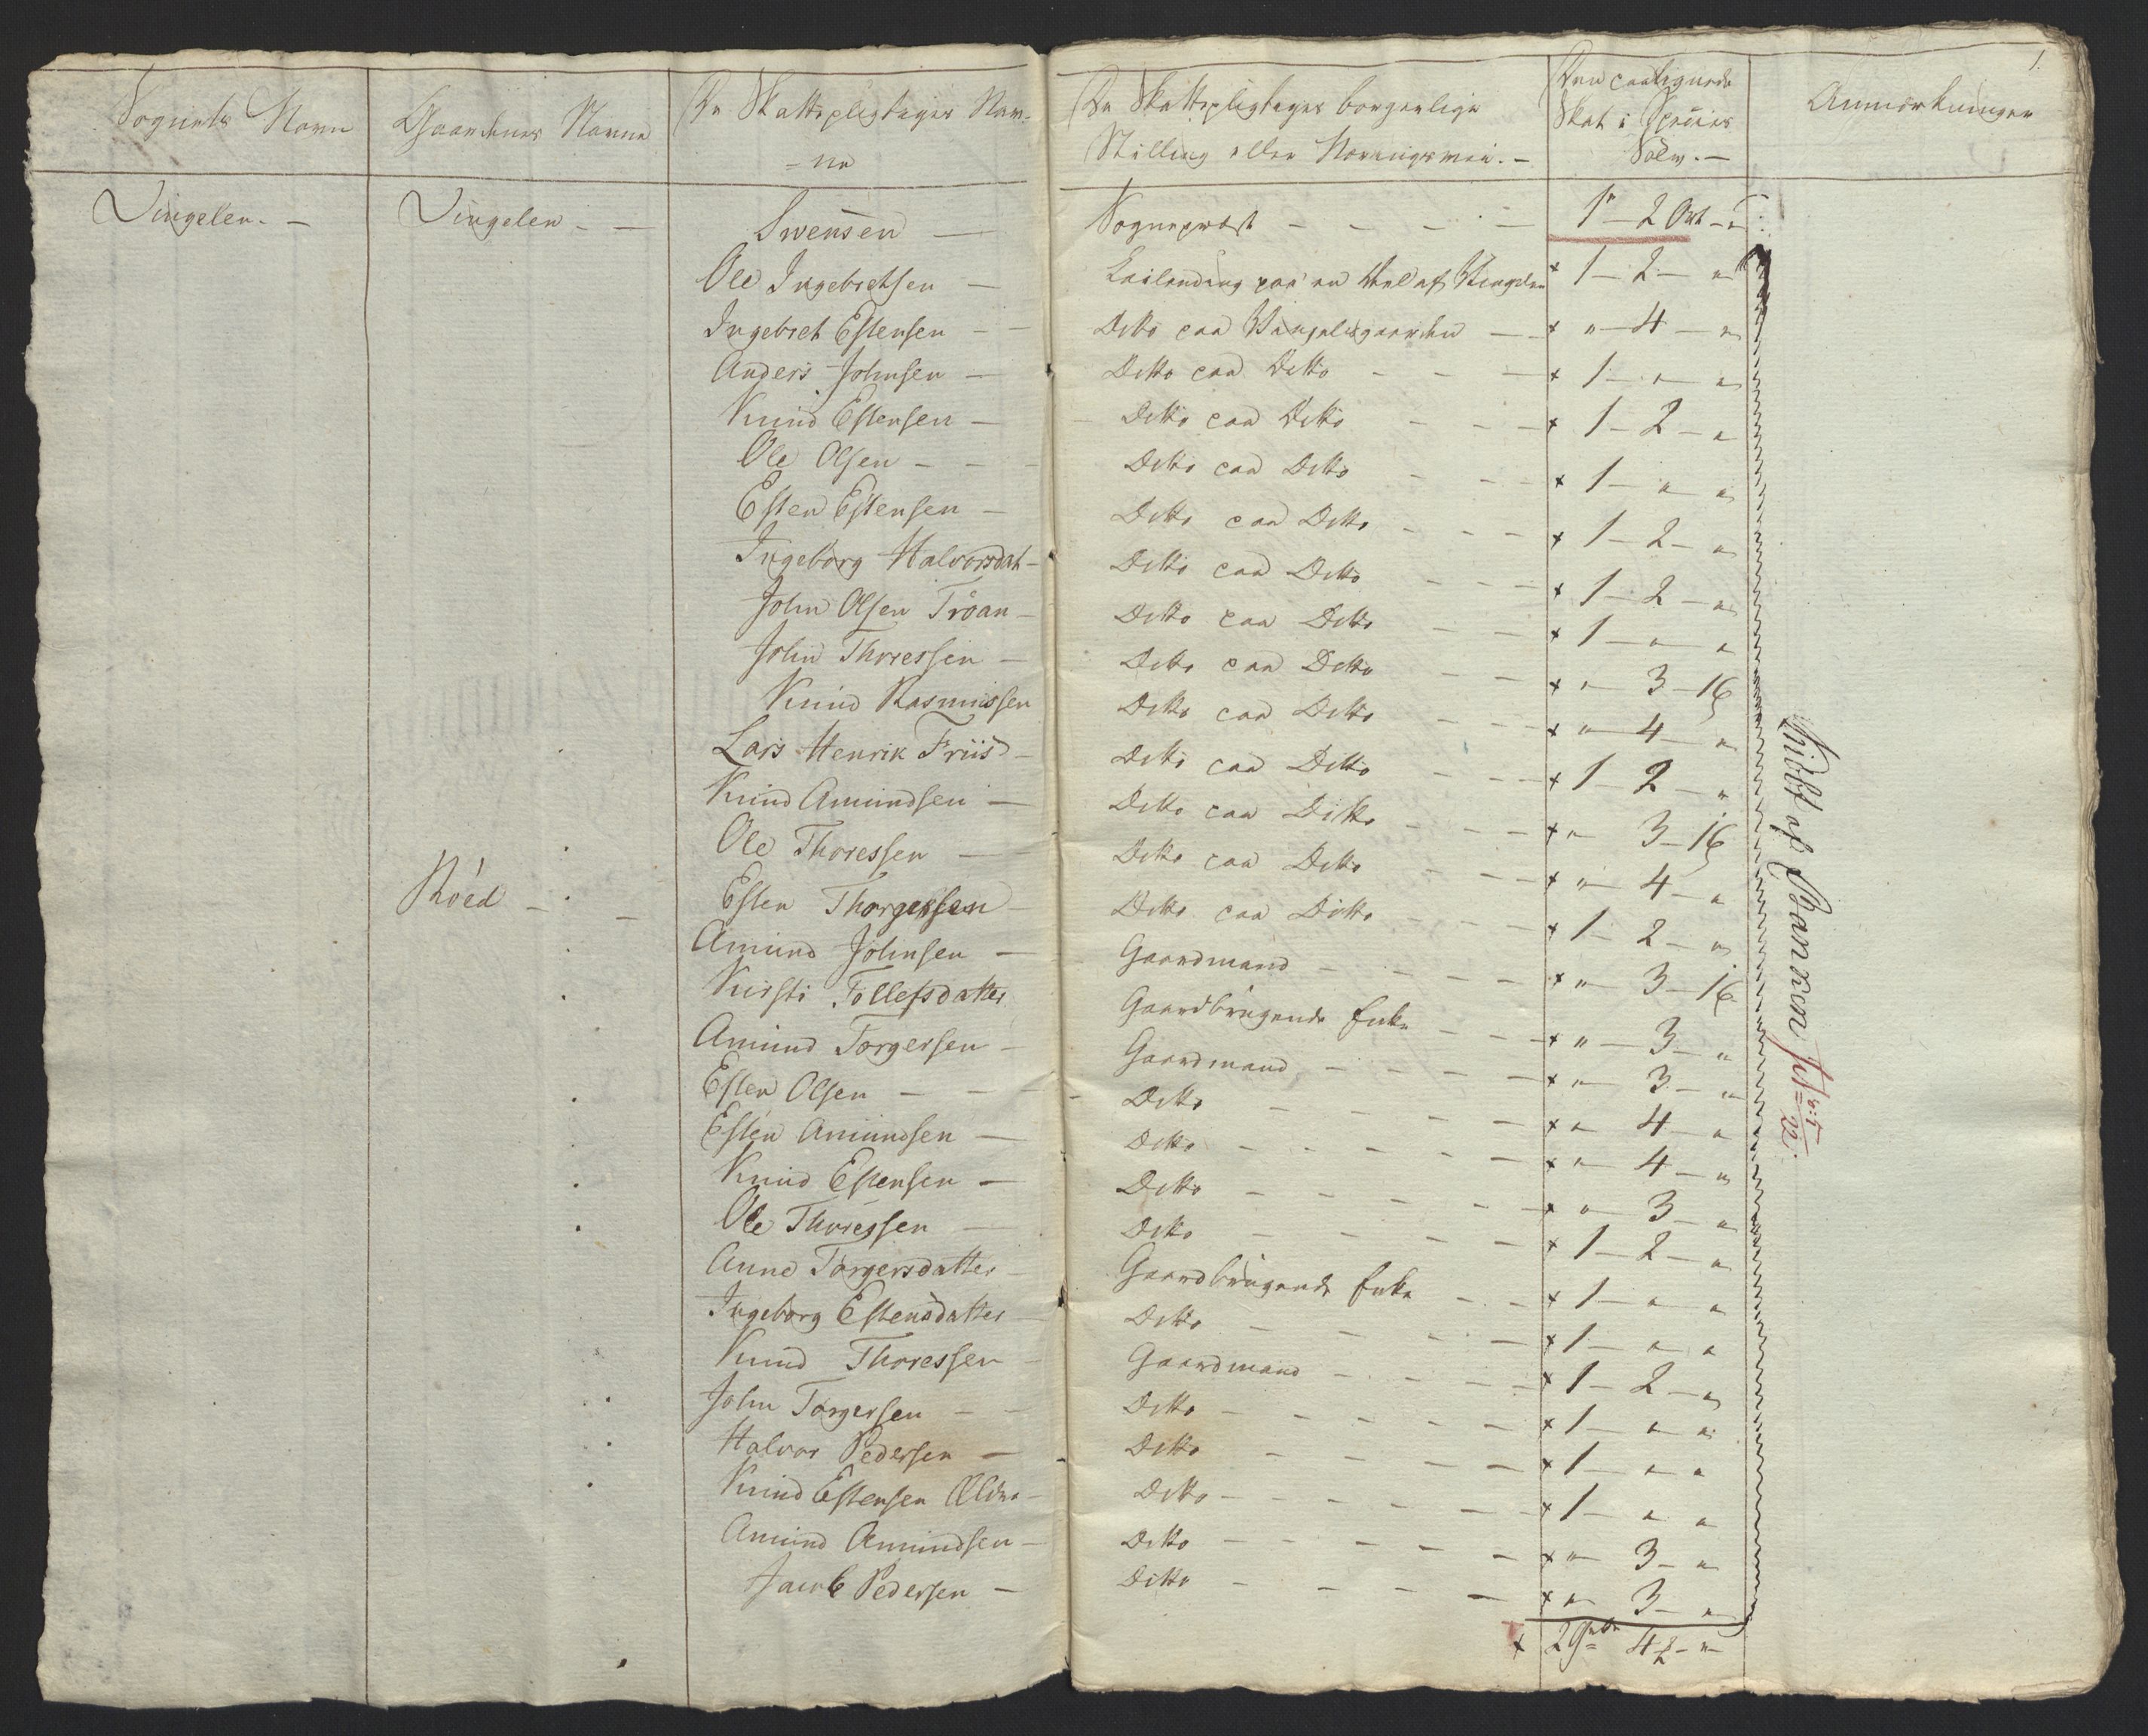 1.
Sognets Navn | Gaardenes Navne | De Skattepligtiges Nav- | De Skattepligtiges borgerlige | Den paalignede | Anmærkninger
=ne | Stilling eller Næringsvei. - | Skat i Species
Sølv. -
Vingelen. - | Vingelen - - | Swensen - | Sogneprest - - - - | 1 - 2 Ort - "
Ole Ingebretsen - | Leilending paa en Deel af Vingelen | + 1 - 2 - "
Ingebret Estensen - - | Ditto paa Vingelsgaarden - | + " - 4 - "
Anders Johnsen - | Ditto paa Ditto - - - | + 1 - " - "
Knud Estensen - | Ditto paa Ditto - - - | + 1 - 2 - "
Ole Olsen - - - | Ditto paa Ditto - - - | + 1 - " - "
Esten Estensen - | Ditto paa Ditto - - - | + 1 - 2 - "
Ingeborg Halvorsdat- | Ditto paa Ditto - - - | + 1 - 2 - "
John Olsen Trøan - | Ditto paa Ditto - - | + 1 - " - "
John Thoressen - | Ditto paa Ditto - - | + " - 3 - 16
Knud Rasmussen | Ditto paa Ditto - - - | + " - 4 - "
Lars Henrik Friis - | Ditto paa Ditto - - - | + 1 - 2 - "
Knud Amundsen - | Ditto paa Ditto - - - | + " - 3 - 16
Ole Thoressen - | Ditto paa Ditto - - - | + " - 4 - "
Røed - - | Esten Thorgersen - | Ditto paa Ditto - - - | + 1 - 2 - "
Amund Johnsen - | Gaardmand - - - - | + " - 3 - 16
Kirsti Tollefsdatter | Gaardbrugende Enke - - | + " - 3 - "
Amund Torgersen - | Gaardmand - - - - | + " - 3 - "
Esten Olsen - - - | Ditto - - - - | + " - 4 - "
Esten Amundsen - | Ditto - - - - - | + " - 4 - "
Knud Estensen - | Ditto - - - - - | + " - 3 - "
Ole Thoressen - | Ditto - - - - - | + 1 - 2 - "
Anne Torgersdatter - | Gaardbrugende Enke - - | + 1 - " - "
Ingeborg Estensdatter - | Ditto - - - - | + 1 - " - "
Knud Thoressen - | Gaardmand - - - - | + 1 - 2 - "
John Torgersen - - | Ditto - - - - - | + 1 - " - "
Halvor Pedersen - | Ditto - - - - | + 1 - " - "
Knud Estensen - | Ditto - - - - - | + 1 - " - "
Amund Amundsen - | Ditto - - - - - | + " - 3 - "
Jacob Pedersen - | Ditto - - - - | + " - 3 - "
+ 29 4 - "
af Banken